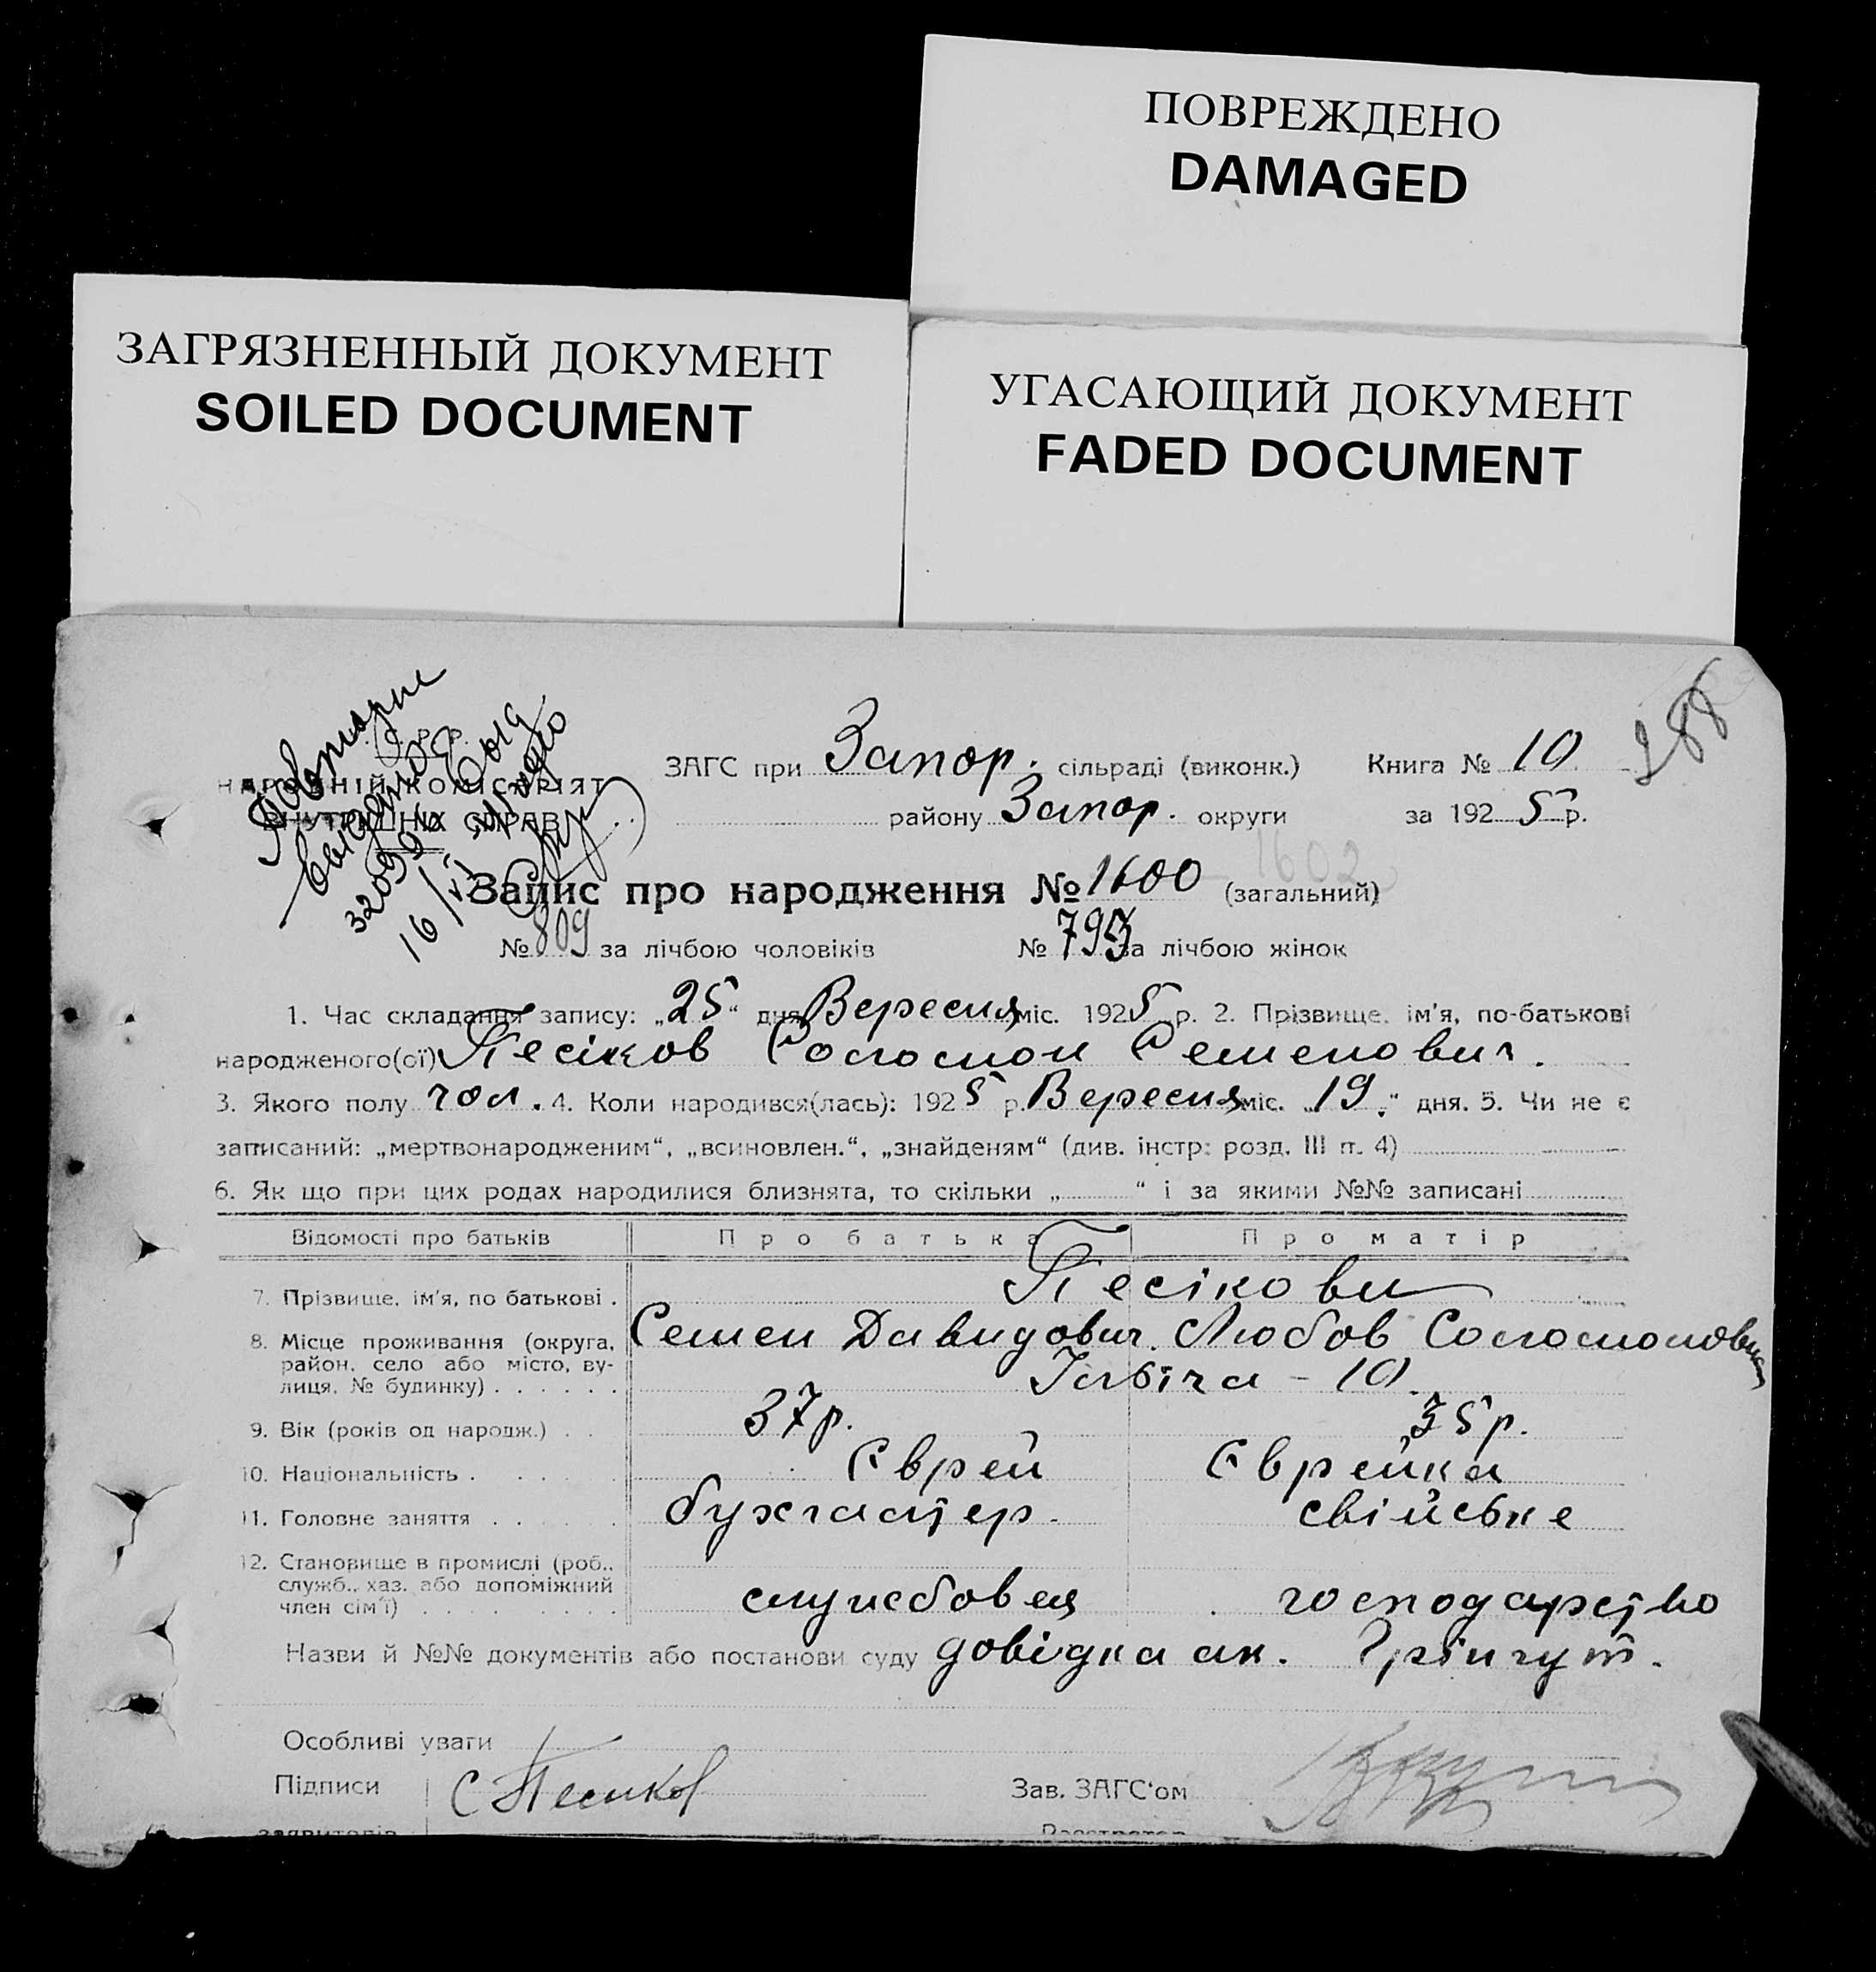 ПОВРЕЖДЕНО
DAMAGED
ЗАГРЯЗНЕННЫЙ ДОКУМЕНТ
SOILED DOCUMENT
УГАСАЮЩИЙ ДОКУМЕНТ
FADED DOCUMENT
288
Повторне
32099
16/VI
НАРОДНІЙ КОМІСАРІЯТ
ВНУТРІШНІХ СПРАВ
ЗАГС при Запор. сільраді (виконк.) Книга № 10
району Запор. округи за 1925 р.
1602
Запис про народження № 1600 (загальний)
№ 809 за лічбою чоловіків № 793 за лічбою жінок
1. Час складання запису: „25“ дня Вересня міс. 1925 р. 2. Прізвище, ім'я, по-батькові
народженого(ої) Песіков Соломон Семенович.
3. Якого полу чол. 4. Коли народився(лась): 1925 р. Вересня міс. „19“ дня. 5. Чи не є
записаний: „мертвонародженим“, „всиновлен.“, „знайденям“ (див. інстр. розд. III п. 4)
6. Як що при цих родах народилися близнята, то скільки „ “ і за якими №№ записані
Відомості про батьків Про батька Про матір
7. Прізвище, ім'я, по батькові . Песікови
Семен Давидович. Любов Соломоновна
8. Місце проживання (округа, район, село або місто, вулиця, № будинку) . . . . . . – 10.
9. Вік (років од народж.) . . 37 р. 35 р.
10. Національність . . . . . Єврей Єврейка
11. Головне заняття . . . . . бухгалтер. свійське
12. Становище в промислі (роб., служб., хаз. або допоміжний член сім'ї) . . . . . . . . службовця господарство
Назви й №№ документів або постанови суду довідка ак. Грінгут.
Особливі уваги
Підписи С Песиков Зав. ЗАГС‘ом
заявителів Реєстратор